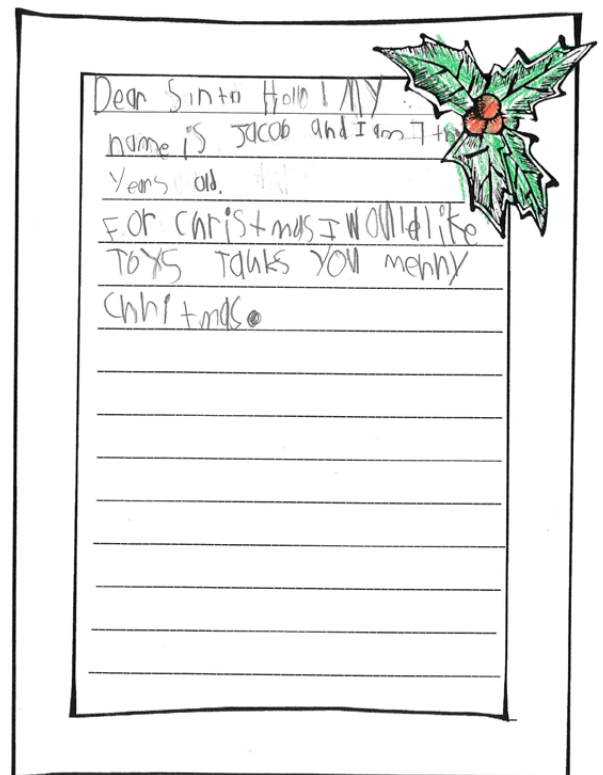 Dear Sinta Hollo ! MY
name is Jacob and I am 7
years old.
FOr Christmas I WOUld like
TOYS Tanks YOU menny
Chhitmas.